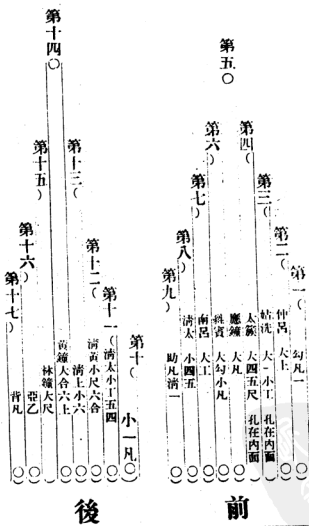 第一 勾凡一
第二 仲呂 大上
第三 姑洗 大一小工 孔在內面
第四 太簇 大四五尺 孔在內面
第五 應鐘 大凡
第六 蕤賓 大勾小凡
第七 南呂 大工
第八 清太 小四五
第九 助凡清一
前
第十 小一凡
第十一 清太小工五四
第十二 清黃小尺六合
第十三 清上小六
第十四 黃鐘大合六上
第十五 林鐘大尺
第十六 亞乙
第十七 背凡
後